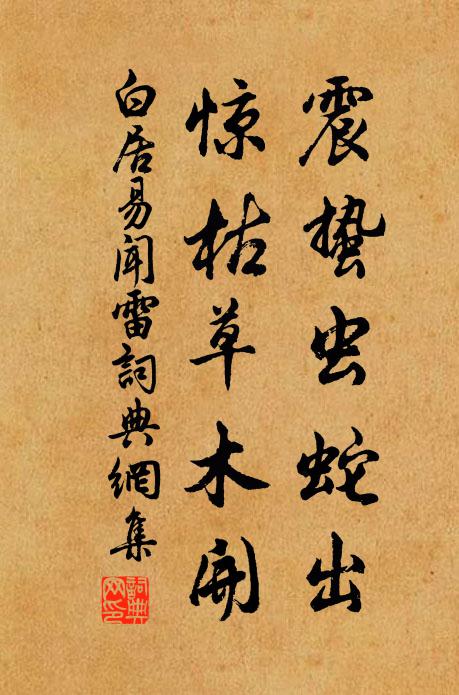 震蛰虫蛇出
惊枯草木开
白居易闻雷詞典網集
詞典网印